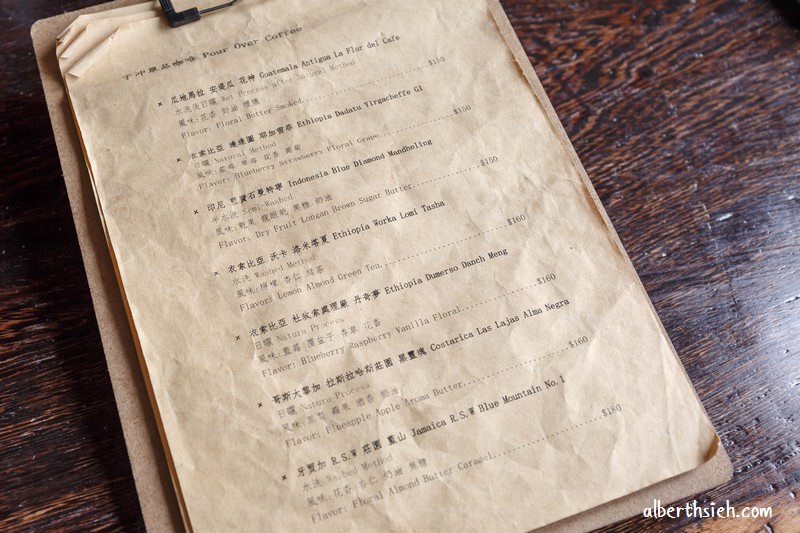 手沖單品咖啡 Pour Over Coffee
× 瓜地馬拉 安堤瓜 花神 Guatemala Antigua La Flor del Cafe
水洗後日曬 Wet Process after Natural Method
風味:花香 奶油 煙燻
Flavor: Floral Butter Smoked $150
× 衣索比亞 達達圖 耶加雪菲 Ethiopia Dadatu Yirgacheffe G1
日曬 Natural Method
風味:藍莓 草莓 花香 葡萄
Flavor: Blueberry Strawberry Floral Grape $150
× 印尼 藍寶石曼特寧 Indonesia Blue Diamond Mandheling
半水洗 Semi Washed
風味:乾果 龍眼乾 黑糖 奶油
Flavor: Dry Fruit Longan Brown Sugar Butter $150
× 衣索比亞 沃卡 洛米塔夏 Ethiopia Worka Lomi Tasha
水洗 Washed Method
風味:檸檬 杏仁 綠茶
Flavor: Lemon Almond Green Ten $160
× 衣索比亞 杜玫索處理廠 丹奇夢 Ethiopia Dumerso Danch Meng
日曬 Natura Process
風味:藍莓 覆盆子 香草 花香
Flavor: Blueberry Raspberry Vanilla Floral $160
× 哥斯大黎加 拉斯拉哈斯莊園 黑靈魂 Costarica Las Lajas Alma Negra
日曬 Natura Process
風味:鳳梨 蘋果 酒香 奶油
Flavor: Pineapple Apple Aroma Butter $160
× 牙買加 R.S.W 莊園 藍山 Jamaica R.S.W Blue Mountain No.1
水洗 Washed Method
風味:花香 杏仁 奶油 焦糖
Flavor: Floral Almond Butter Caramel $180
alberthsieh.com